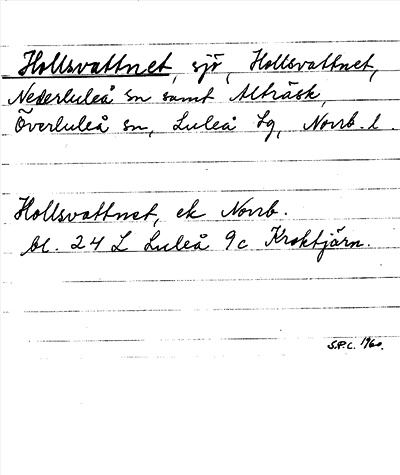 Hollsvattnet, sjö, Hollsvattnet,
Nederluleå sn samt Alträsk,
Överluleå sn, Luleå lg, Norrb. l.
Hollsvattnet, ek Norrb.
bl. 24 L Luleå 9c Kroktjärn.
S.P.C. 1960.